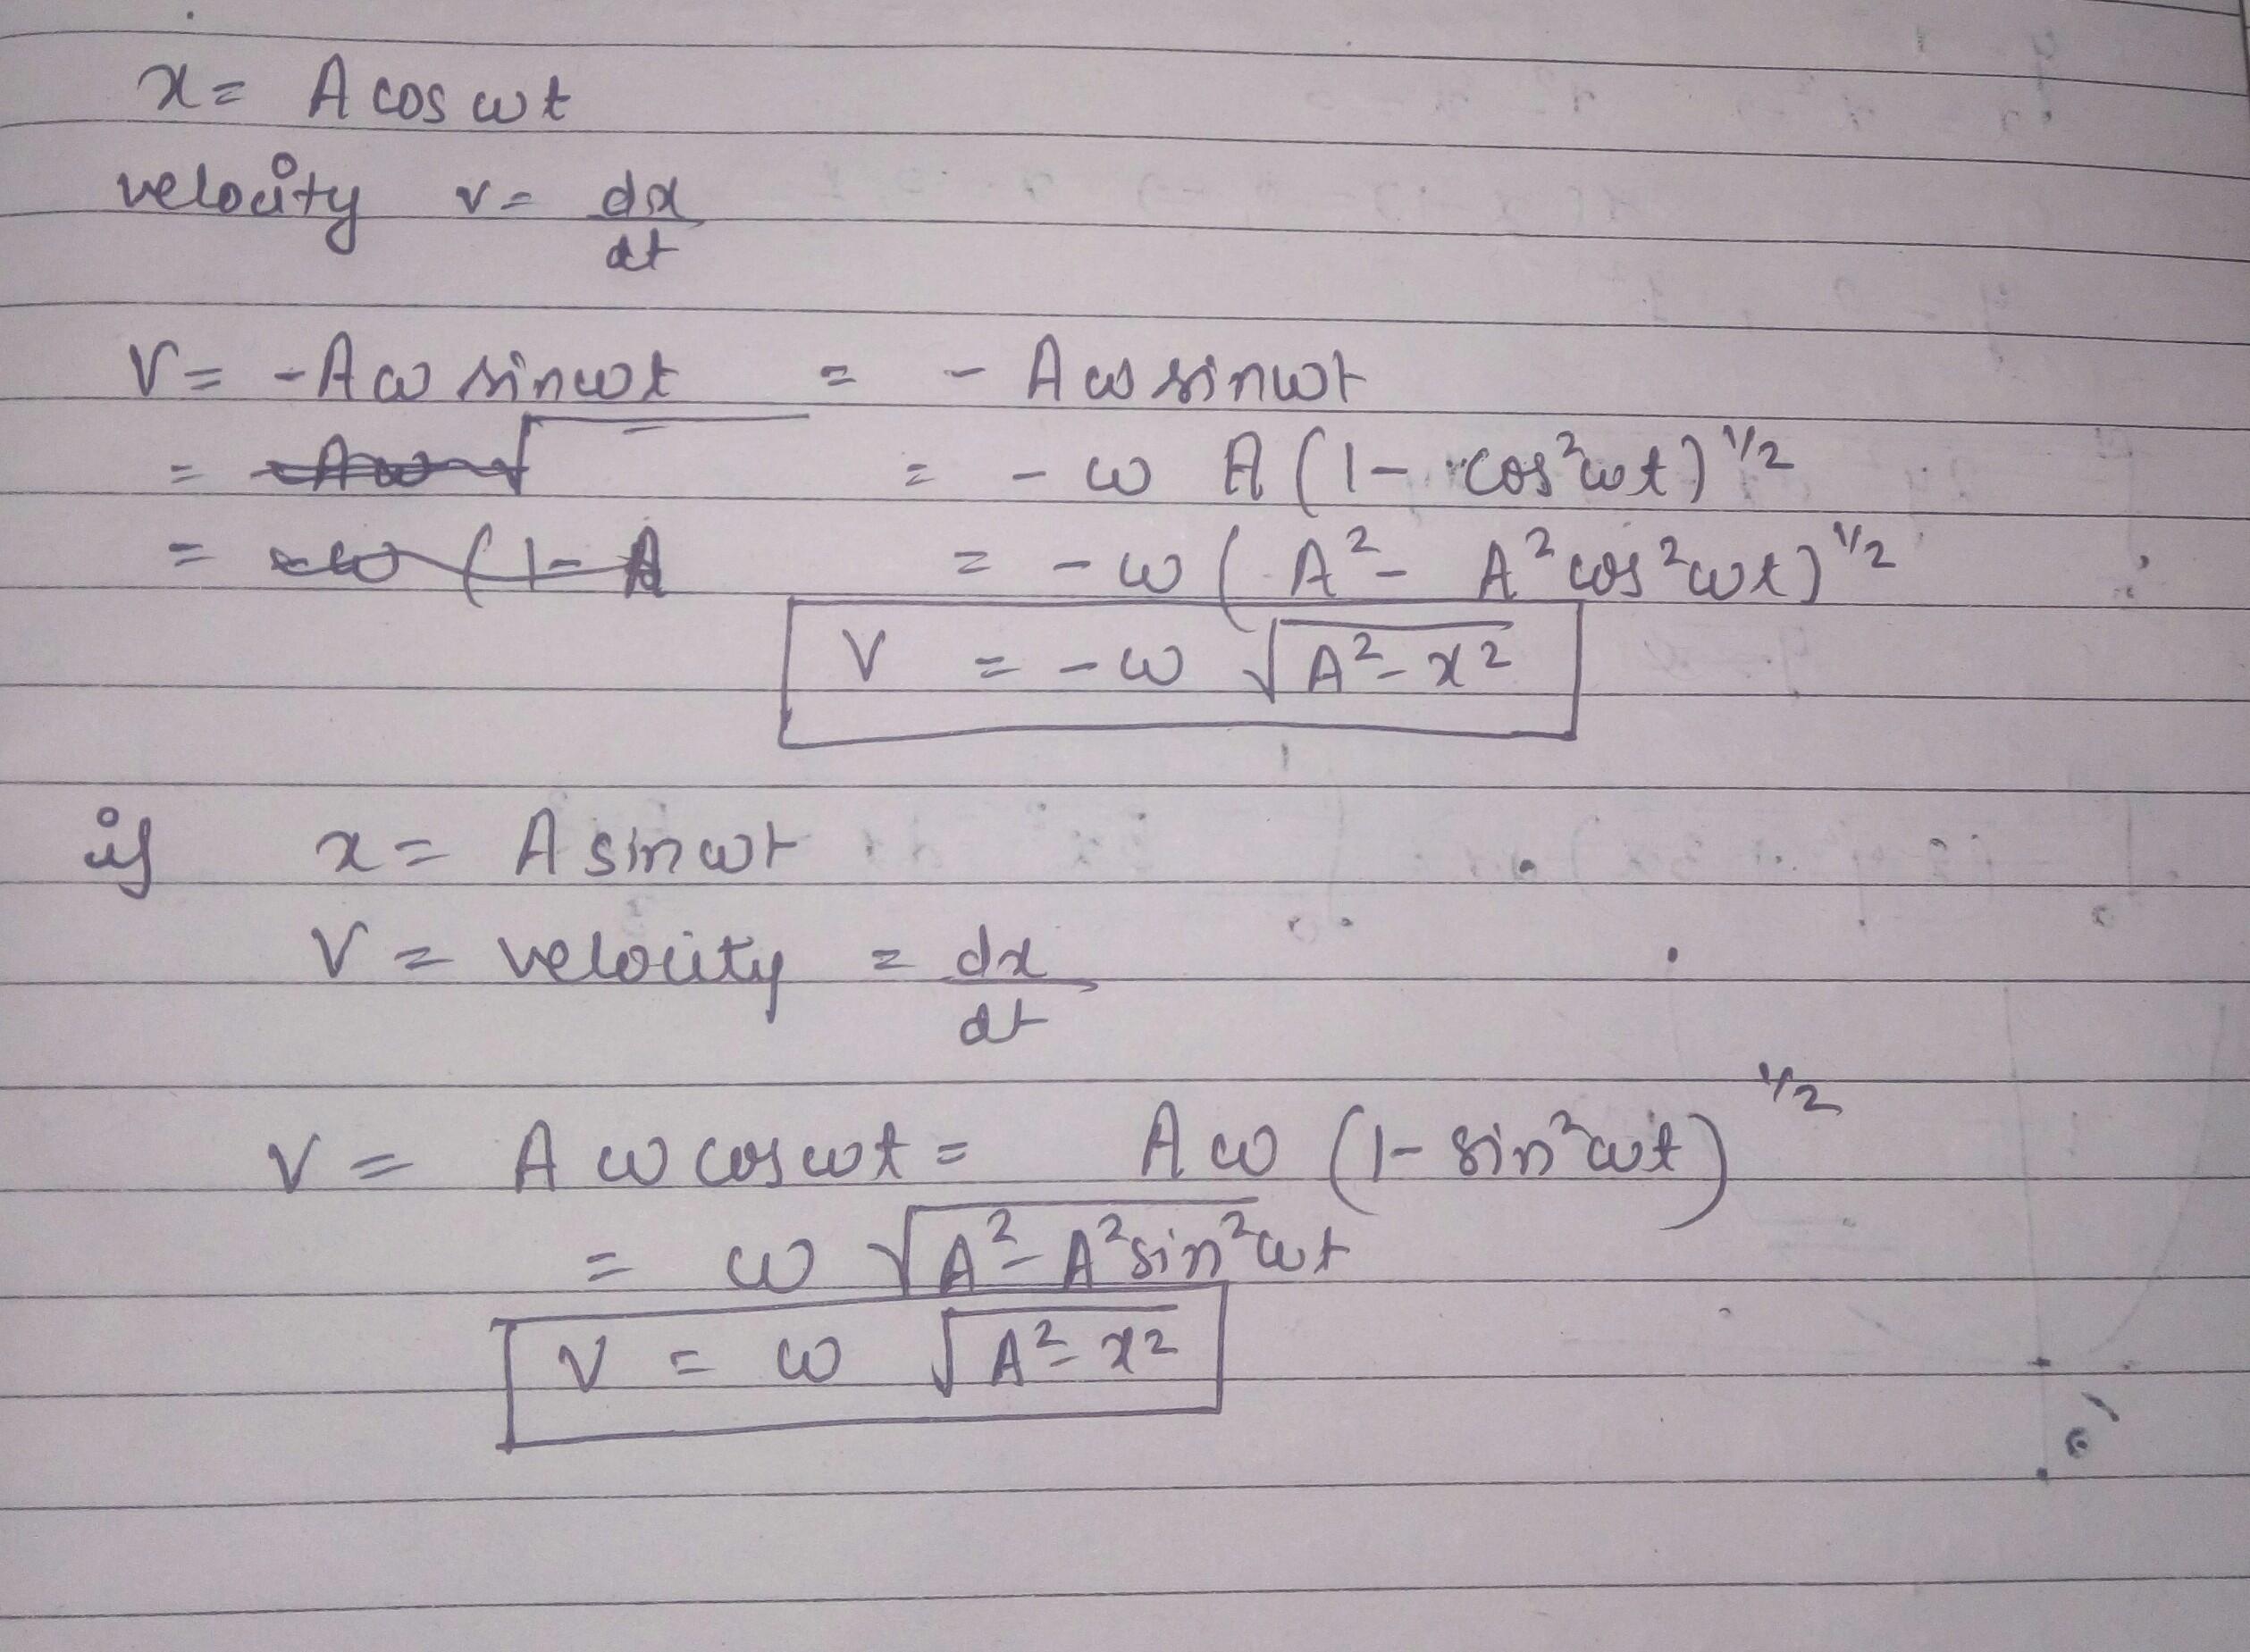 x = A cos ωt
velocity v = dx/dt
V = -Aω sinωt = - Aω sinωt
= -Aω√ = - ω A (1 - cos²ωt)^1/2
= -ω (1 - A = - ω (A² - A² cos²ωt)^1/2
V = - ω √A² - x²
if x = A sinωt
V = velocity = dx/dt
V = A ω cosωt = Aω (1 - sin²ωt)^1/2
= ω √A² - A² sin²ωt
V = ω √A² - x²